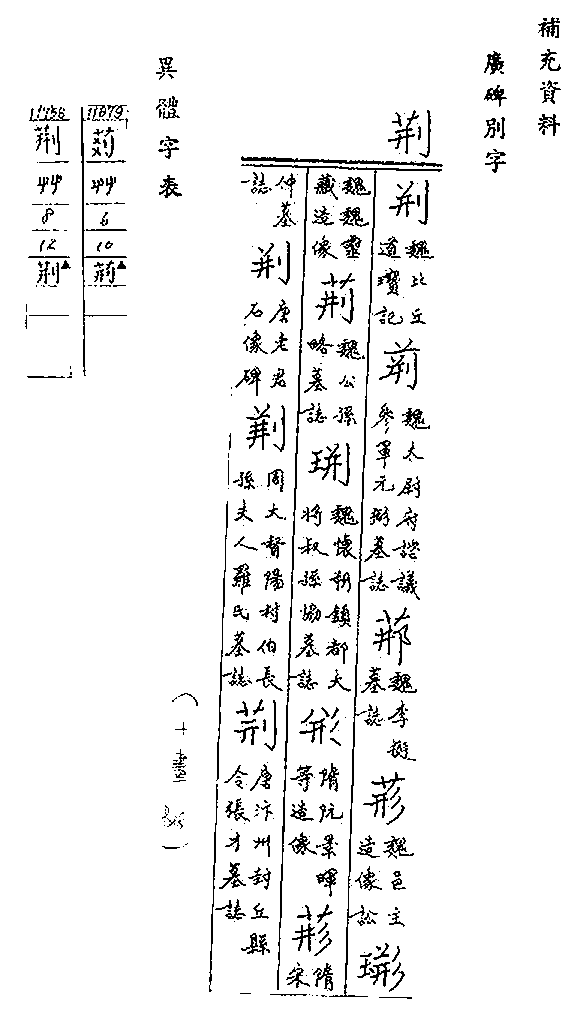 補充資料
廣碑別字
荆
荆 魏比丘道瓚記 荆 魏太尉府諮議參軍元弼墓誌 荆 魏李挺墓誌 荆 魏邑主造像訟
魏魏靈藏造像 荆 魏公孫略墓誌 魏懷朔鎮都大將叔孫協墓誌 隋阮景暉等造像 隋宋
仲墓誌 荆 唐老君石像碑 荆 周大督陽村伯長孫夫人羅氏墓誌 荆 唐汴州封丘縣令張才墓誌
(十畫
異體字表
11079
艸
6
10
荊▲
艸
8
12
荆▲